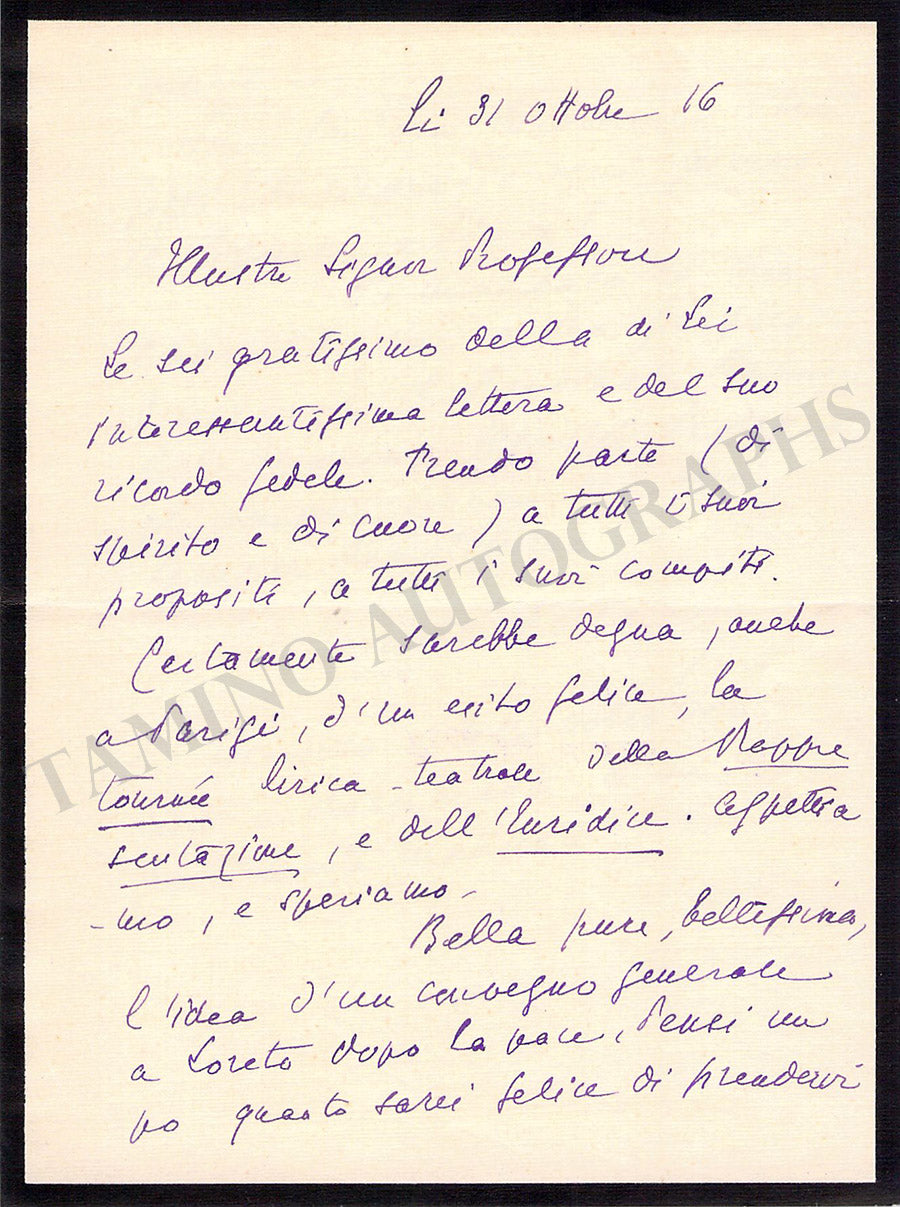 Li 31 Ottobre 16
Illustre Signor Professore
Le sei gratissimo della di Lei
interessantissima lettera e del suo
ricordo fedele. Prendo parte (di
spirito e di cuore) a tutti i suoi
propositi, a tutti i suoi compiti.
Certamente sarebbe degna, anche
a Parigi, d'un esito felice, la
tournée lirica-teatrale della Rappre
sentazione, e dell'Euridice. Aspettia
-mo, e speriamo-
Bella pure, bellissima,
l'idea d'un convegno generale
a Loreto dopo la pace. Pensi un
po quanto sarei felice di prendervi
TAMINO AUTOGRAPHS